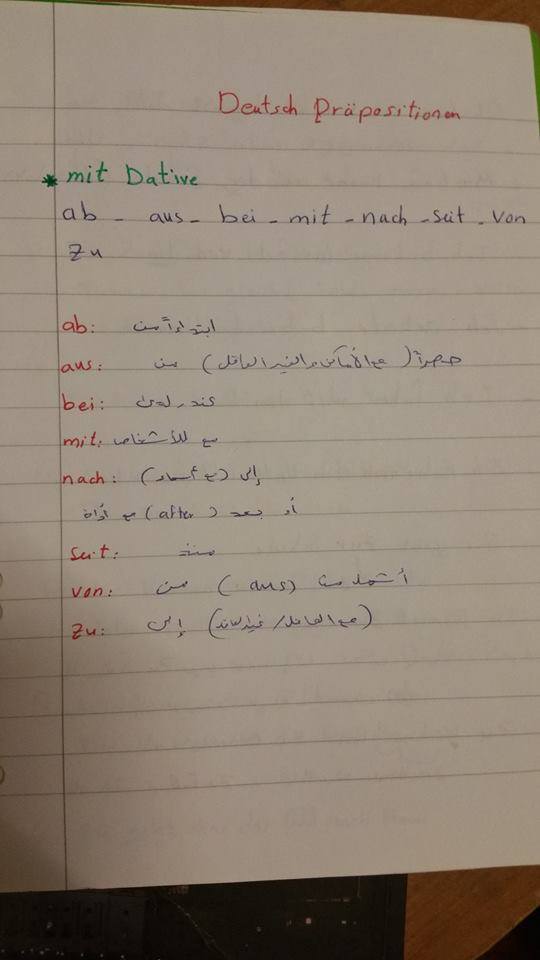 Deutsch Präpositionen
* mit Dative
ab - aus - bei - mit - nach - seit - von
zu
ab: ابتداءاً من
aus: من (مع الأماكن و الغير العاقل) حصراً
bei: عند، لدى
mit: مع للأشخاص
nach: إلى (مع أسماء)
أو بعد (after) مع أداة
seit: منذ
von: من (aus) أشمل من
zu: إلى (مع العاقل/